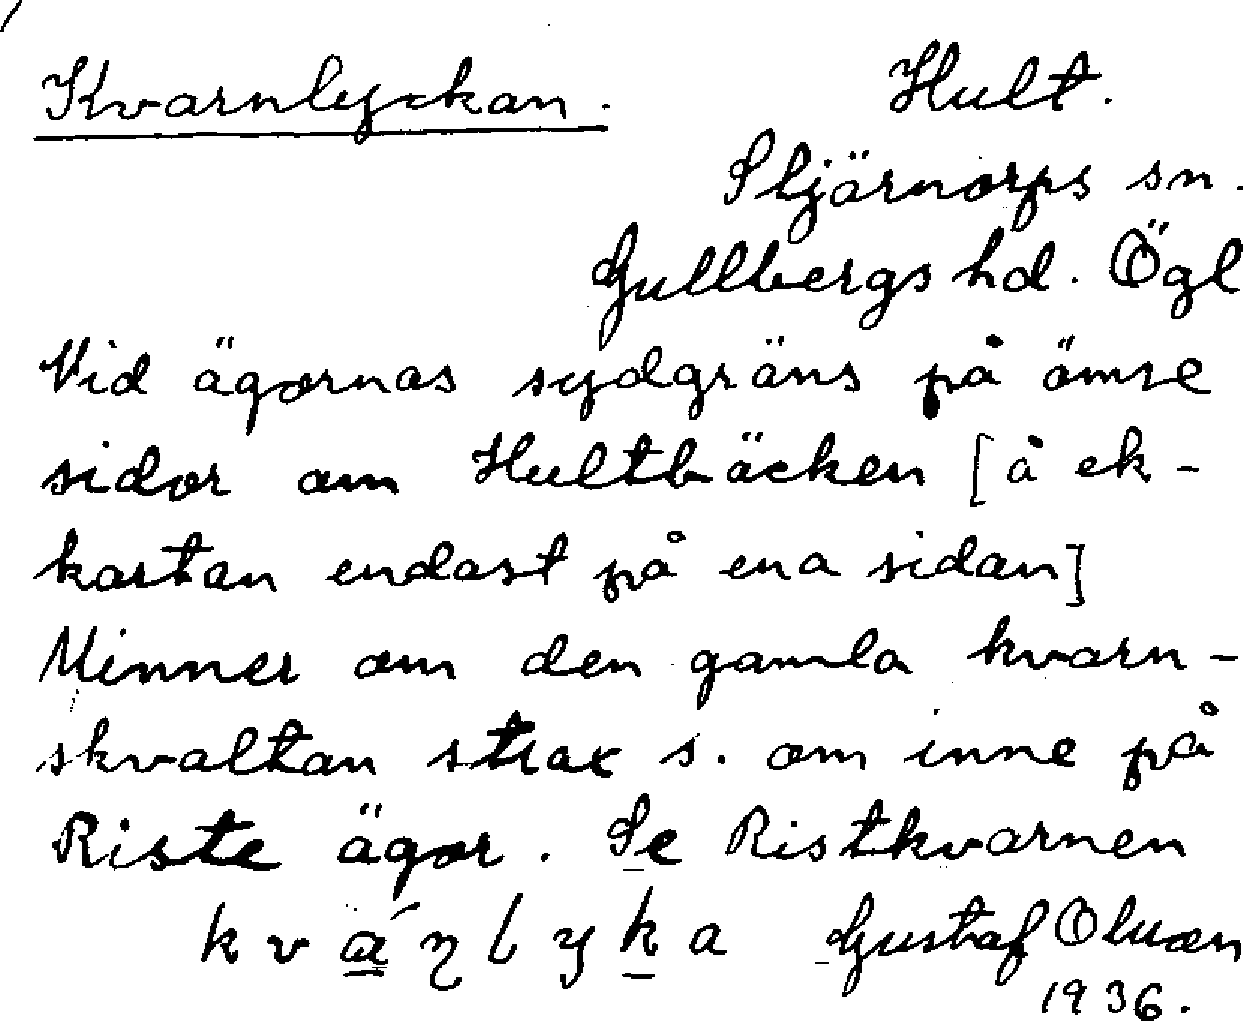 Kvarnlyckan. Hult.
Stjärnorps sn.
Gullbergs hd. Ögl
Vid ägornas sydgräns på ömse
sidor om Hultbäcken [å ek-
kartan endast på ena sidan]
Minner om den gamla kvarn-
skvaltan strax s. om inne på
Riste ägor. Se Ristkvarnen
Gustaf
1936.